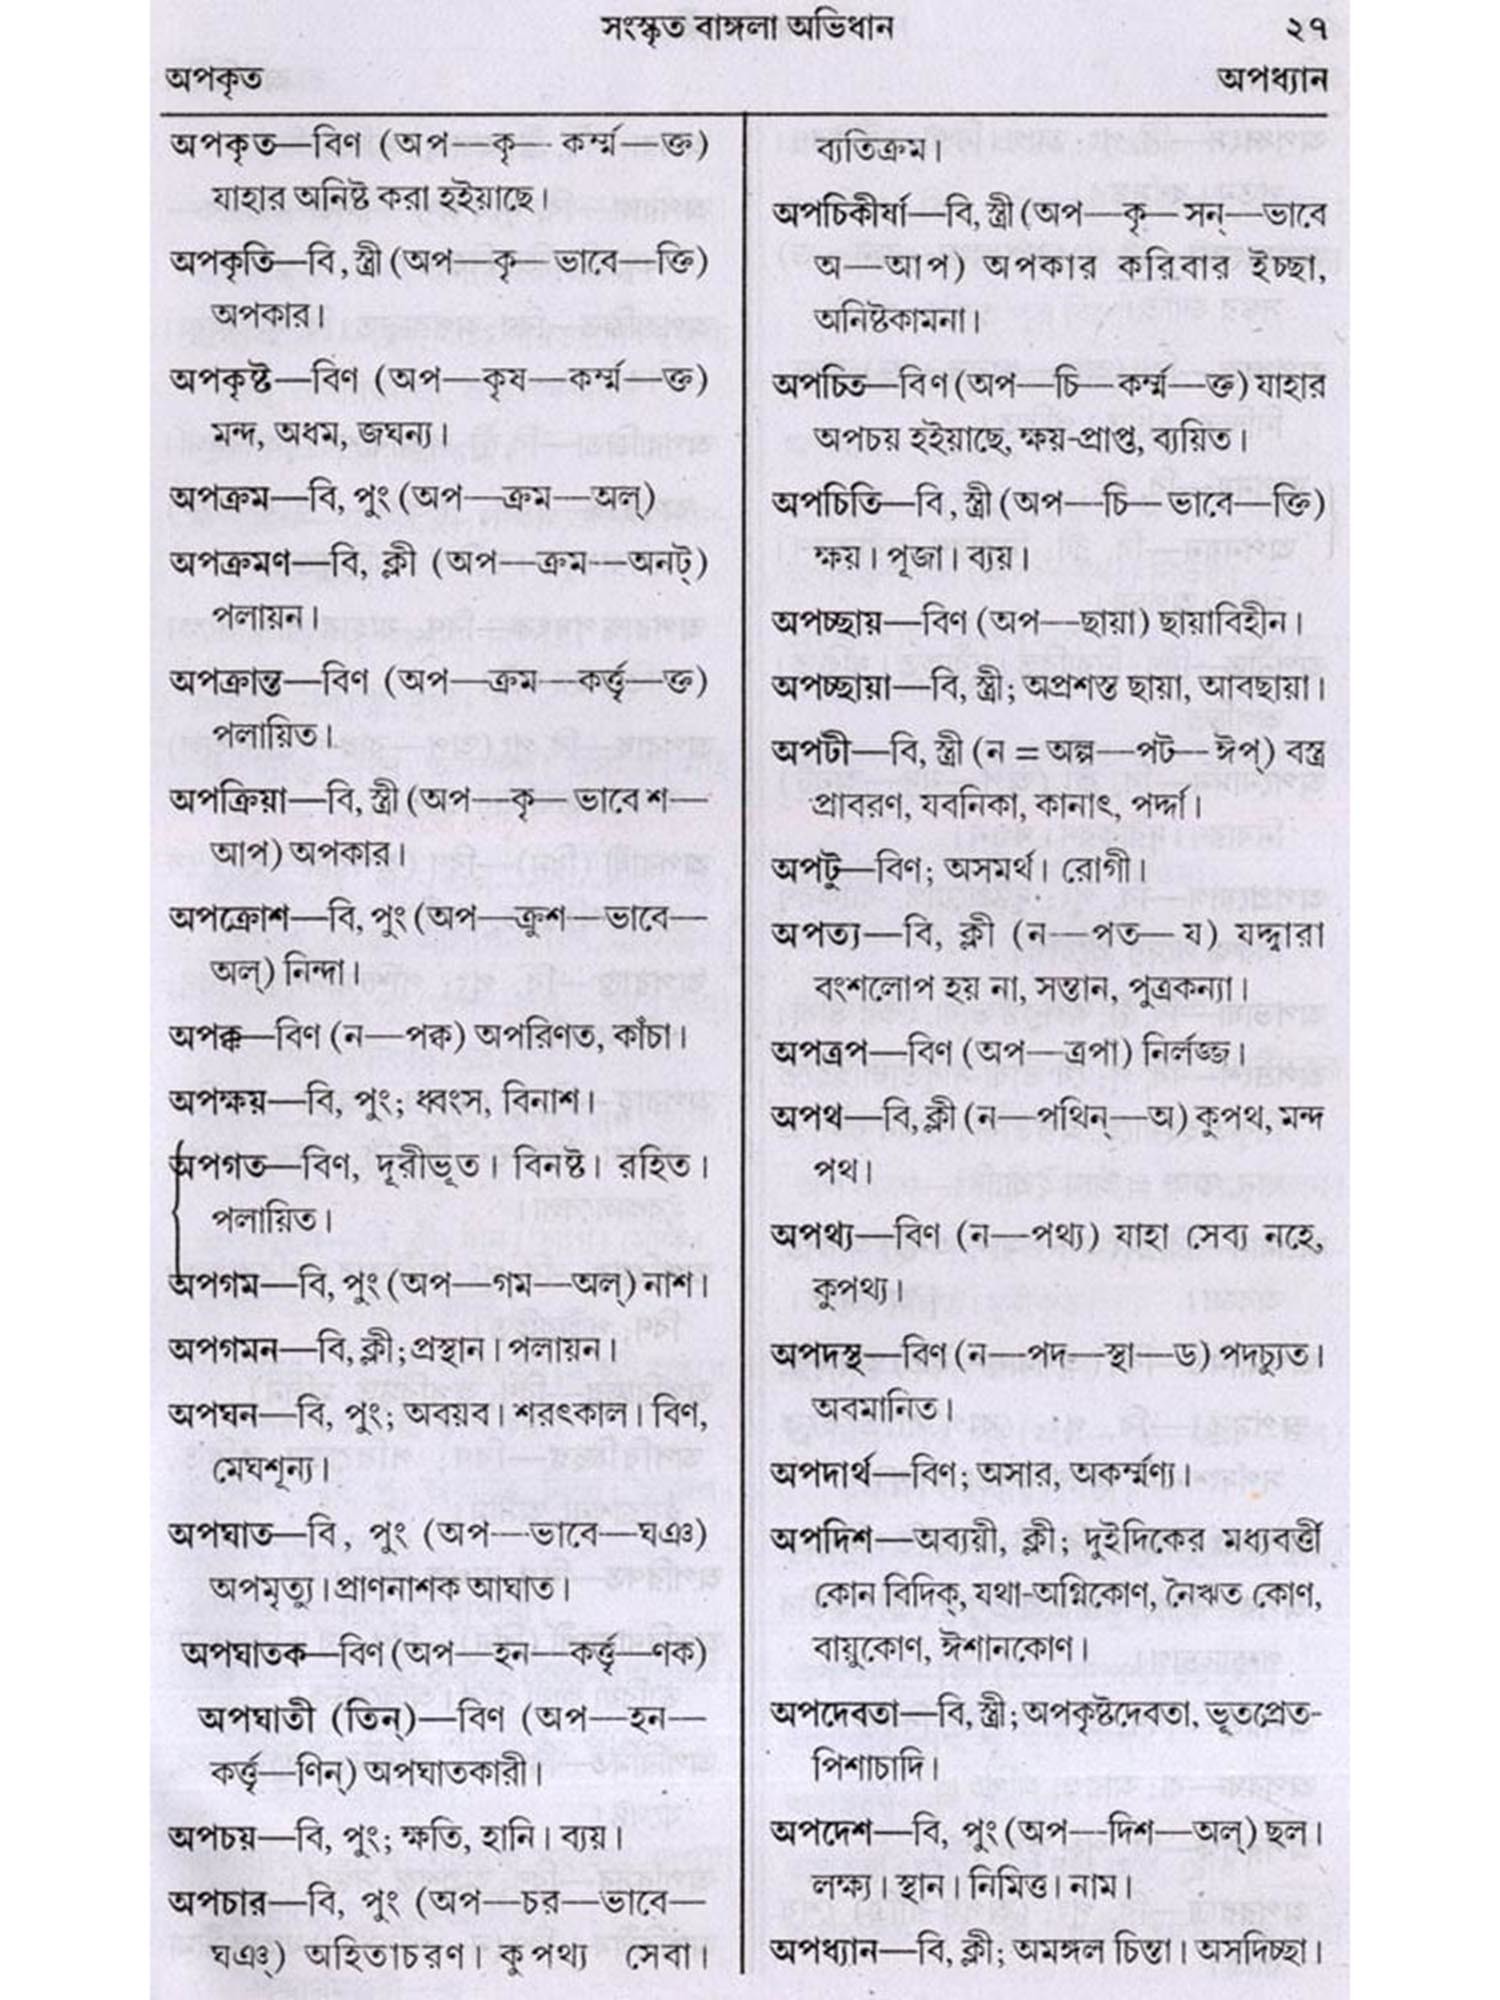 সংস্কৃত বাঙ্গলা অভিধান ২৭
অপকৃত অপধ্যান
অপকৃত—বিণ (অপ—কৃ—কর্ম্ম—ক্ত)
যাহার অনিষ্ট করা হইয়াছে।
অপকৃতি—বি, স্ত্রী (অপ—কৃ—ভাবে—ক্তি)
অপকার।
অপকৃষ্ট—বিণ (অপ—কৃষ—কর্ম্ম—ক্ত)
মন্দ, অধম, জঘন্য।
অপক্রম—বি, পুং (অপ—ক্রম—অল্)
অপক্রমণ—বি, ক্লী (অপ—ক্রম—অনট্)
পলায়ন।
অপক্রান্ত—বিণ (অপ—ক্রম—কর্ত্তৃ—ক্ত)
পলায়িত।
অপক্রিয়া—বি, স্ত্রী (অপ—কৃ—ভাবে শ—
আপ) অপকার।
অপক্রোশ—বি, পুং (অপ—ক্রুশ—ভাবে—
অল্) নিন্দা।
অপক্ক—বিণ (ন—পক্ক) অপরিণত, কাঁচা।
অপক্ষয়—বি, পুং; ধ্বংস, বিনাশ।
অপগত—বিণ, দূরীভূত। বিনষ্ট। রহিত।
পলায়িত।
অপগম—বি, পুং (অপ—গম—অল্) নাশ।
অপগমন—বি, ক্লী; প্রস্থান। পলায়ন।
অপঘন—বি, পুং; অবয়ব। শরৎকাল। বিণ,
মেঘশূন্য।
অপঘাত—বি, পুং (অপ—ভাবে—ঘঞ)
অপমৃত্যু। প্রাণনাশক আঘাত।
অপঘাতক—বিণ (অপ—হন—কর্ত্তৃ—ণক)
অপঘাতী (তিন্)—বিণ (অপ—হন—
কর্ত্তৃ—ণিন্) অপঘাতকারী।
অপচয়—বি, পুং; ক্ষতি, হানি। ব্যয়।
অপচার—বি, পুং (অপ—চর—ভাবে—
ঘঞ্) অহিতাচরণ। কুপথ্য সেবা।
ব্যতিক্রম।
অপচিকীর্ষা—বি, স্ত্রী (অপ—কৃ—সন্—ভাবে
অ—আপ) অপকার করিবার ইচ্ছা,
অনিষ্টকামনা।
অপচিত—বিণ (অপ—চি—কর্ম্ম—ক্ত) যাহার
অপচয় হইয়াছে, ক্ষয়-প্রাপ্ত, ব্যয়িত।
অপচিতি—বি, স্ত্রী (অপ—চি—ভাবে—ক্তি)
ক্ষয়। পূজা। ব্যয়।
অপচ্ছায়—বিণ (অপ—ছায়া) ছায়াবিহীন।
অপচ্ছায়া—বি, স্ত্রী; অপ্রশস্ত ছায়া, আবছায়া।
অপটী—বি, স্ত্রী (ন = অল্প—পট—ঈপ্) বস্ত্র
প্রাবরণ, যবনিকা, কানাৎ, পর্দ্দা।
অপটু—বিণ; অসমর্থ। রোগী।
অপত্য—বি, ক্লী (ন—পত—য) যদ্দ্বারা
বংশলোপ হয় না, সন্তান, পুত্রকন্যা।
অপত্রপ—বিণ (অপ—ত্রপা) নির্লজ্জ।
অপথ—বি, ক্লী (ন—পথিন্—অ) কুপথ, মন্দ
পথ।
অপথ্য—বিণ (ন—পথ্য) যাহা সেব্য নহে,
কুপথ্য।
অপদস্থ—বিণ (ন—পদ—স্থা—ড) পদচ্যুত।
অবমানিত।
অপদার্থ—বিণ; অসার, অকর্ম্মণ্য।
অপদিশ—অব্যয়ী, ক্লী; দুইদিকের মধ্যবর্ত্তী
কোন বিদিক্, যথা-অগ্নিকোণ, নৈঋত কোণ,
বায়ুকোণ, ঈশানকোণ।
অপদেবতা—বি, স্ত্রী; অপকৃষ্টদেবতা, ভূতপ্রেত-
পিশাচাদি।
অপদেশ—বি, পুং (অপ—দিশ—অল্) ছল।
লক্ষ্য। স্থান। নিমিত্ত। নাম।
অপধ্যান—বি, ক্লী; অমঙ্গল চিন্তা। অসদিচ্ছা।